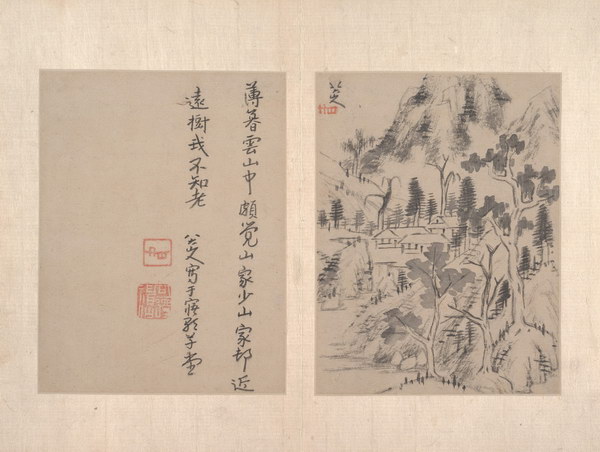 八大山人
薄暮雲山中頗覺山家少山家邨近
遠樹我不知老
八大山人寫于寤歌草堂